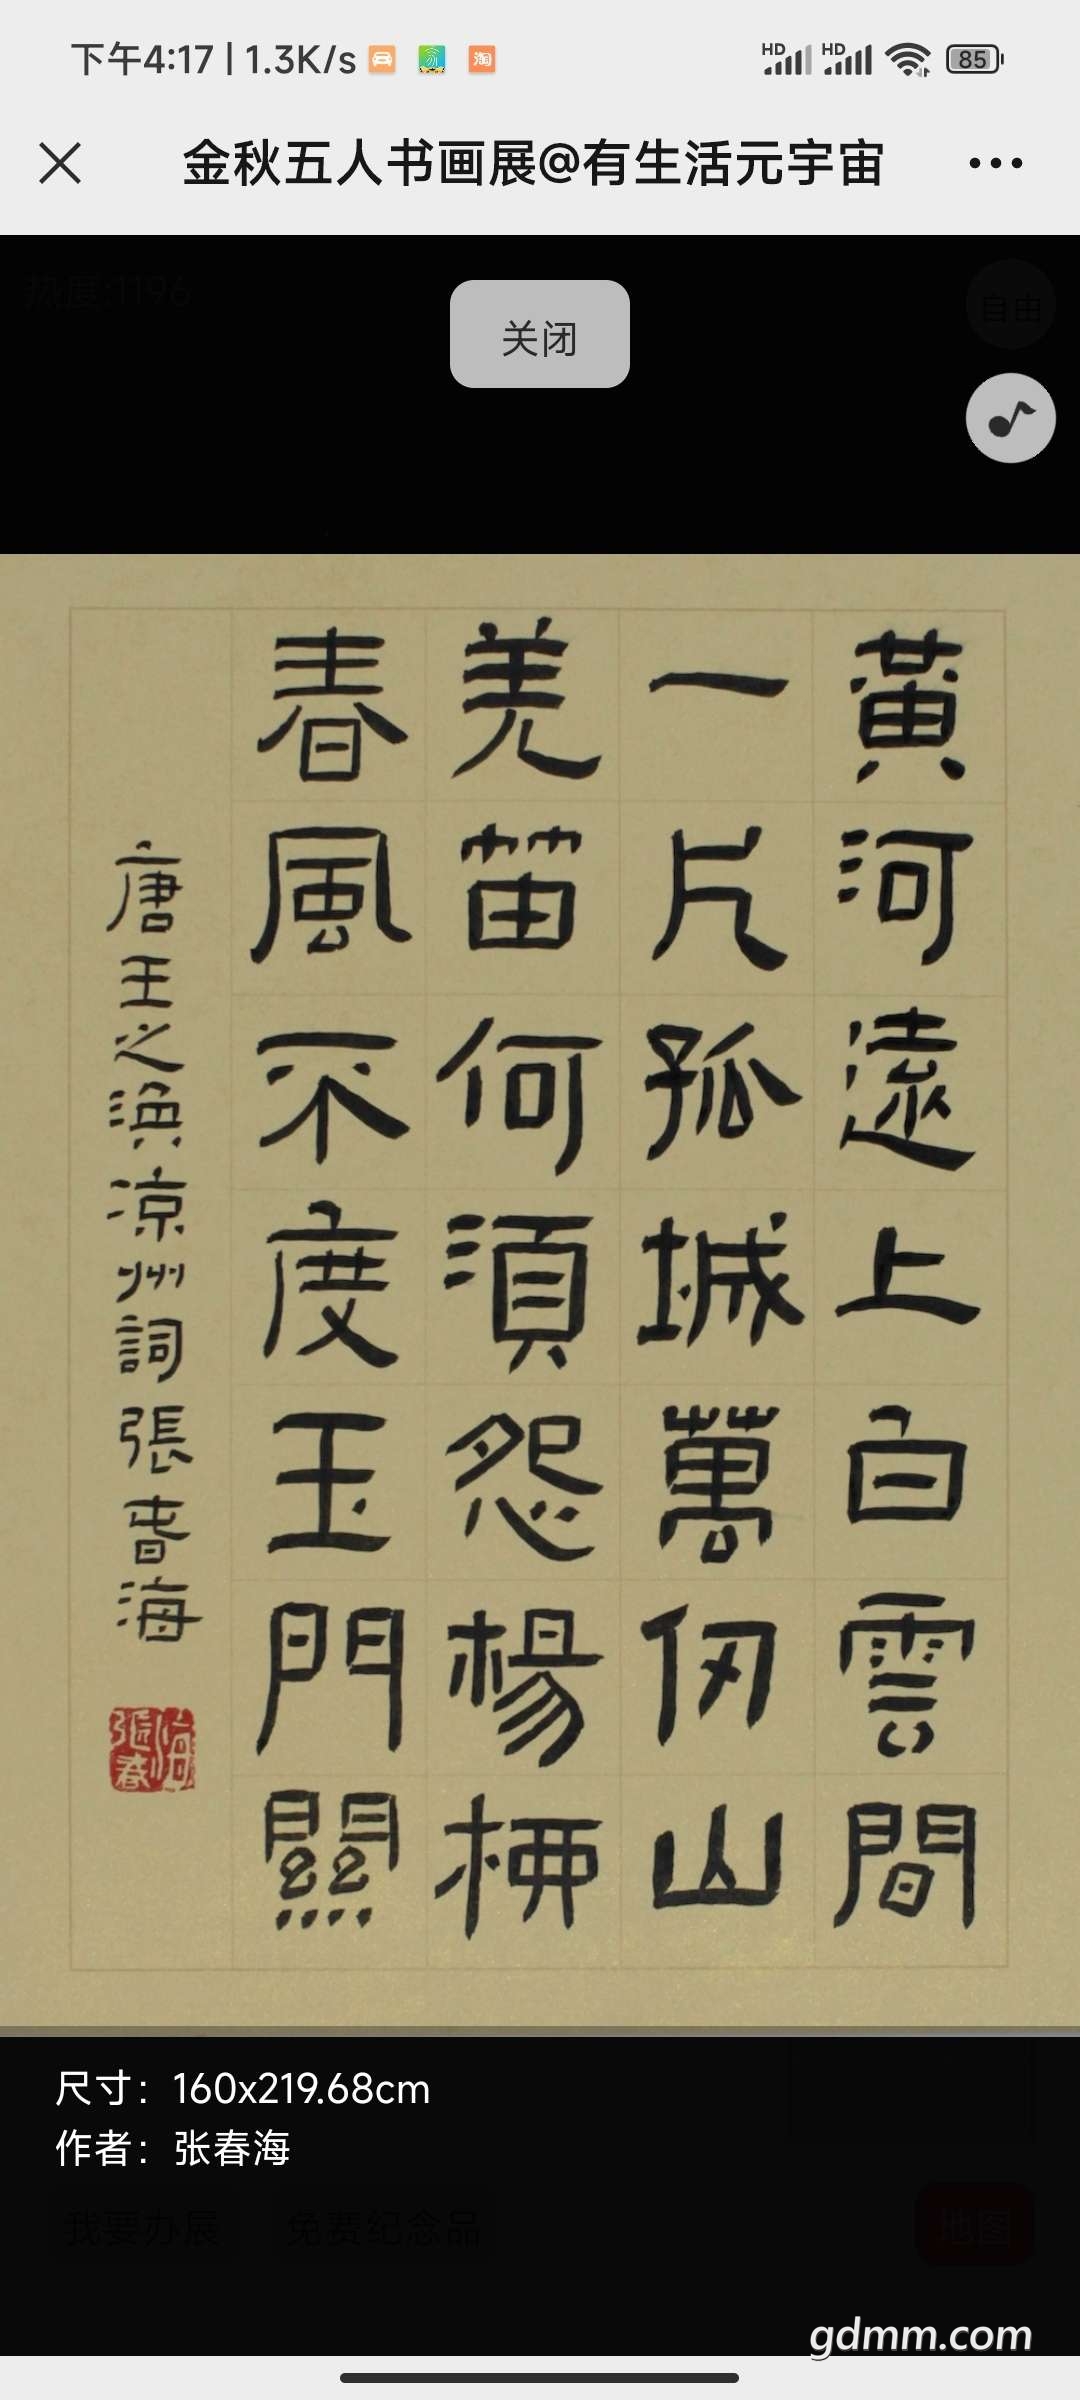 下午4:17 | 1.3K/s
淘
HD
HD
85
金秋五人书画展@有生活元宇宙
热度:1196
关闭
自由
黃河遠上白雲間
一片孤城萬仞山
羌笛何須怨楊柳
春風不度玉門關
唐王之渙凉州詞張春海
張春海
尺寸：160x219.68cm
作者：张春海
我要办展
免费纪念品
地图
gdmm.com